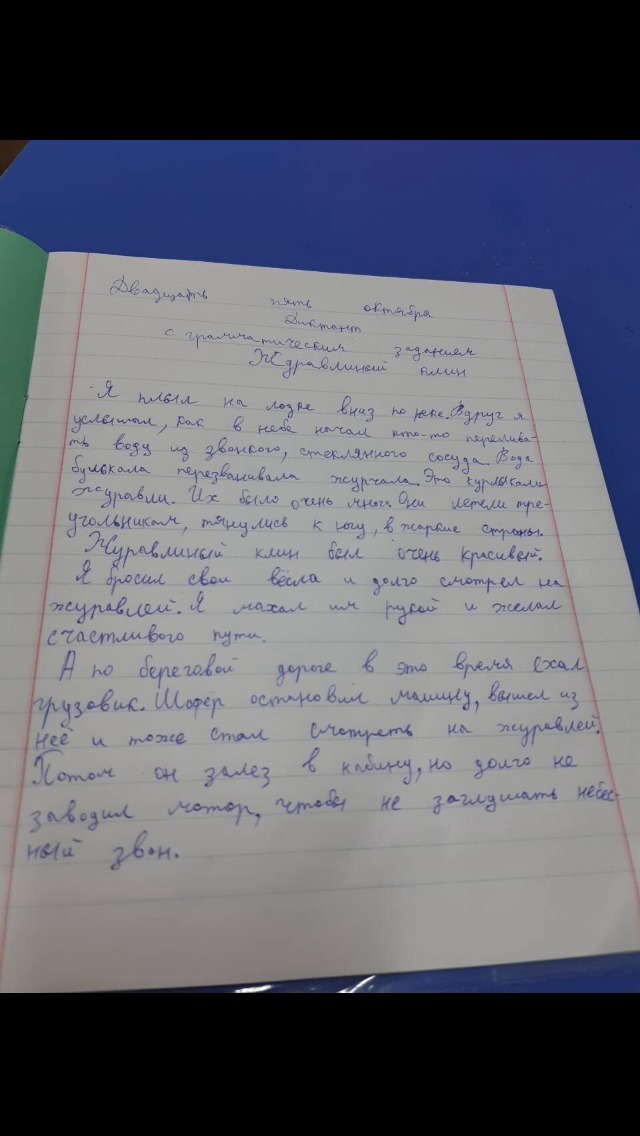 Двадцать пять октября
Диктант
с грамматическим заданием
Ждравлиный клин
Я плыл на лодке вниз по реке. Вдруг я
услышал, как в небе начал кто-то перелива-
ть воду из звонкого, стеклянного сосуда. Вода
булькала перезванивала журчала. Это курлыкали
журавли. Их было очень много. Они летели тре-
угольником, тянулись к югу, в жаркие страны.
Журавлиный клин был очень красивый.
Я бросил свои вёсла и долго смотрел на
журавлей. Я махал им рукой и желал
счастливого пути.
А по береговой дороге в это время ехал
грузовик. Шофёр остановил машину, вышел из
неё и тоже стал смотреть на журавлей.
Потом он залез в кабину, но долго не
заводил мотор, чтобы не заглушать небес-
ный звон.